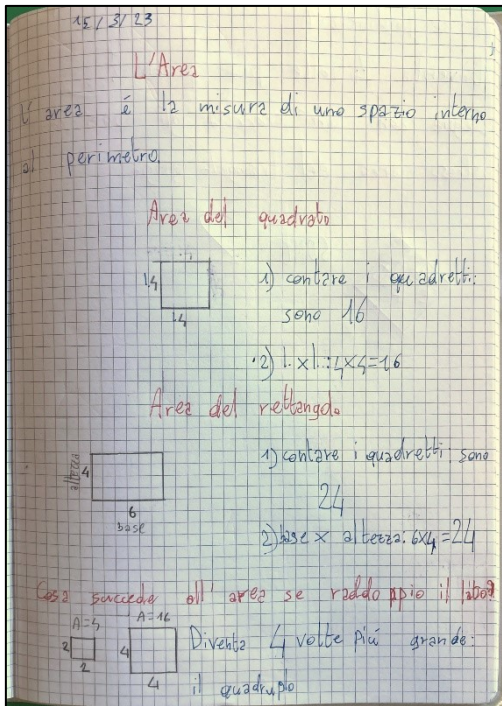 15/3/23
L'Area
L'area é la misura di uno spazio interno
al perimetro.
Area del quadrato
l.4
l.4
1) contare i quadretti:
sono 16
2) l. x l.: 4x4=16
Area del rettangolo
altezza
4
6
base
1) contare i quadretti: sono
24
2) base x altezza: 6x4=24
Cosa succede all'area se raddoppio il lato?
A=4
2
2
A=16
4
4
Diventa 4 volte più grande:
il quadruplo